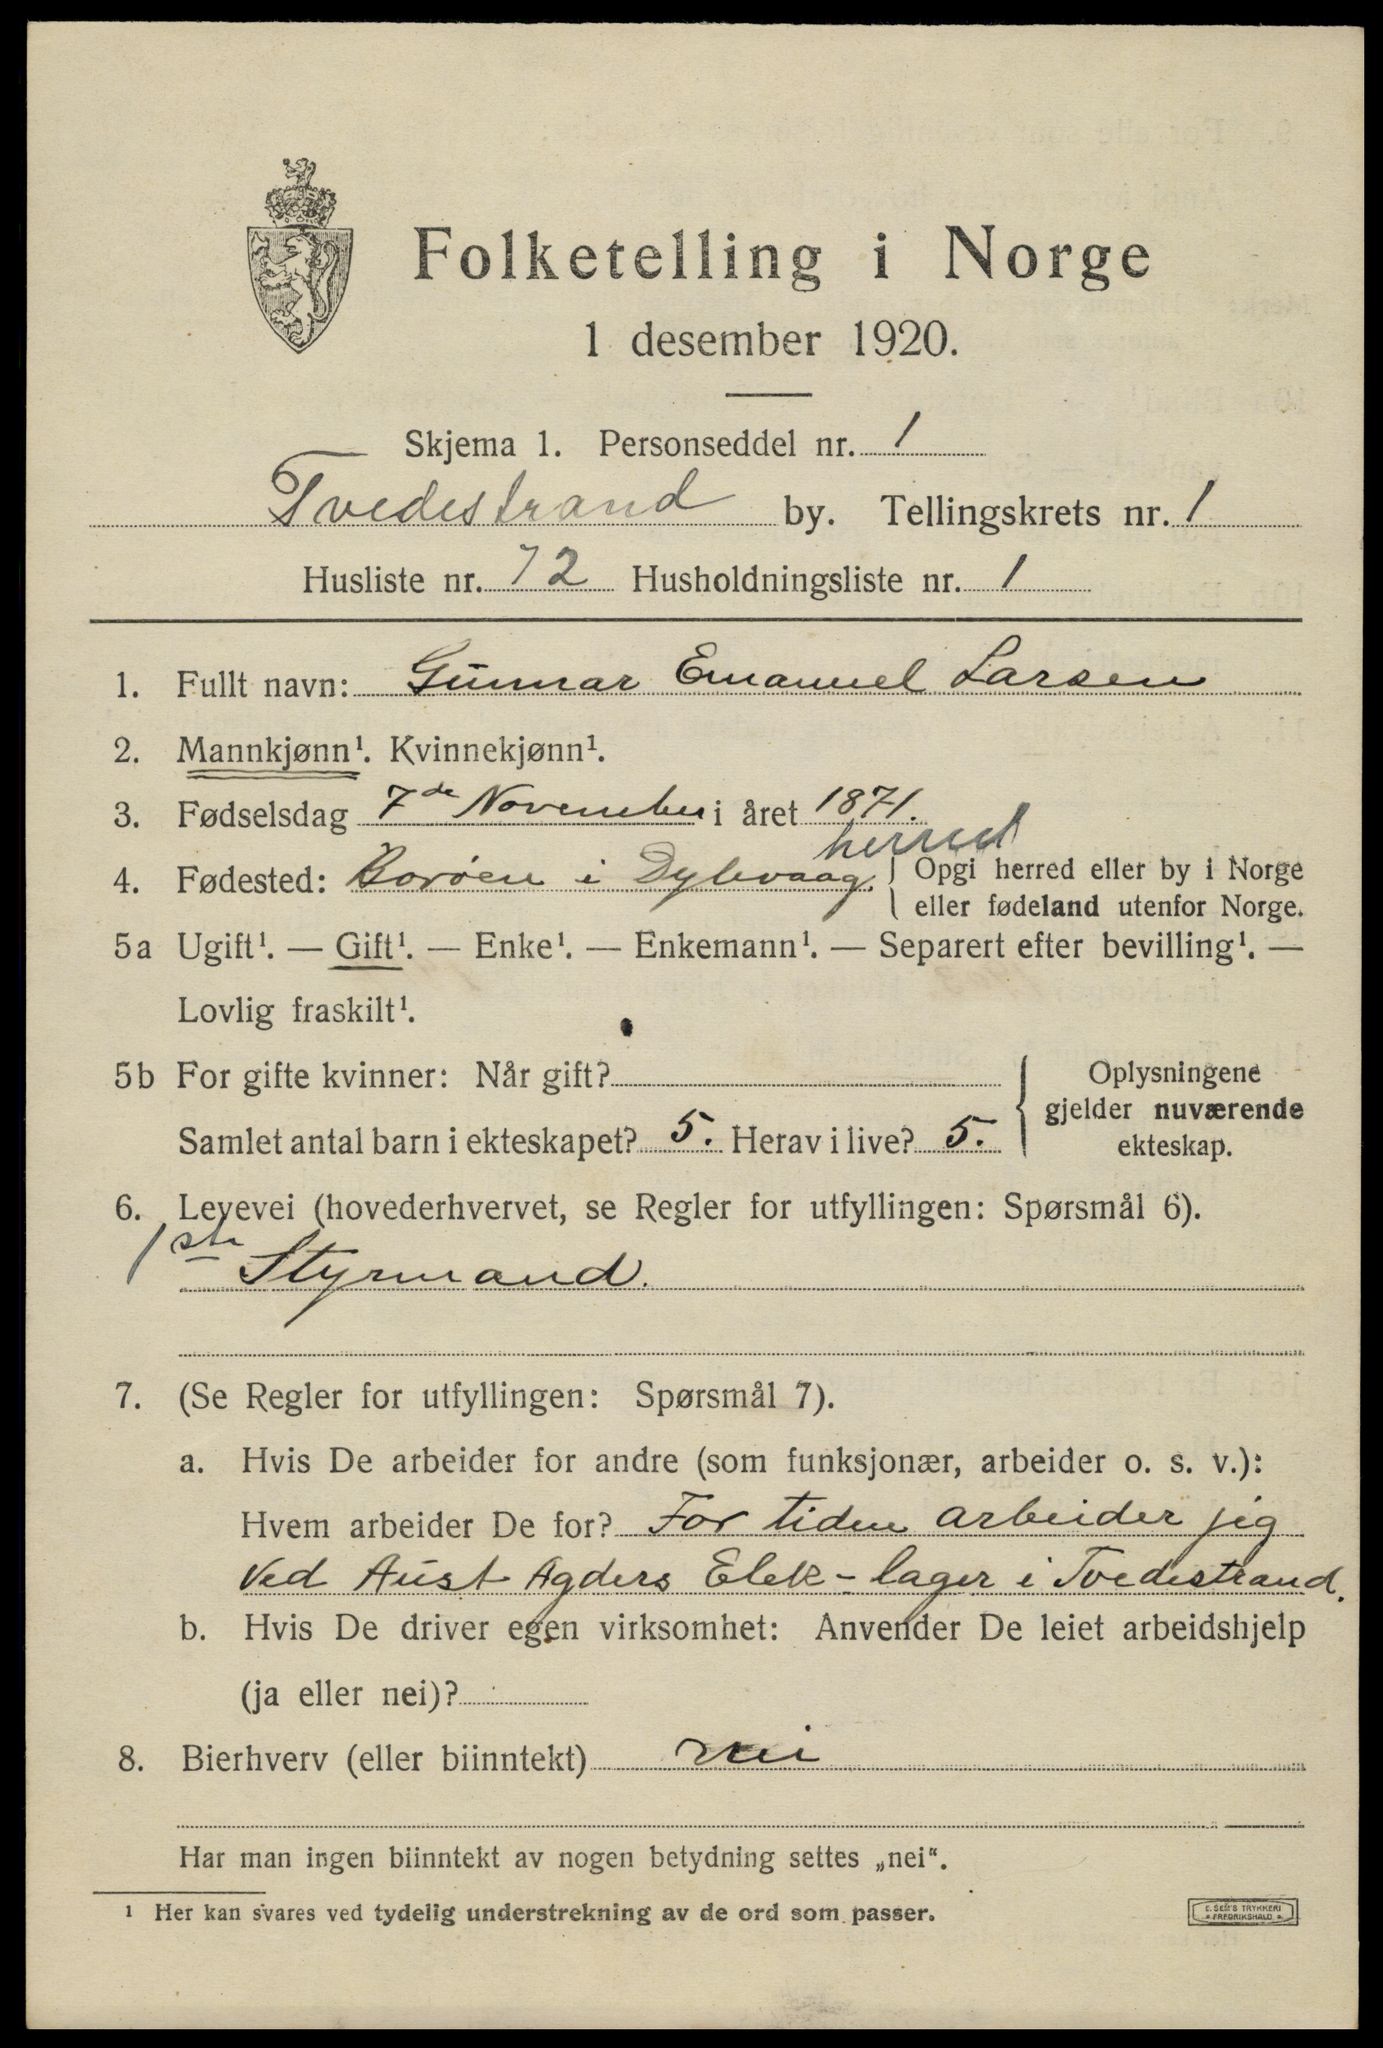 Folketelling i Norge
1 desember 1920.
Skjema 1. Personseddel nr. 1
Tvedestrand by. Tellingskrets nr. 1
Husliste nr. 72 Husholdningsliste nr. 1
1. Fullt navn: Gunnar Emanuel Larsen
2. Mannkjønn¹. Kvinnekjønn¹.
3. Fødselsdag 7de November i året 1871.
herred
4. Fødested: Borøen i Dybvaag. Opgi herred eller by i Norge
eller fødeland utenfor Norge.
5a Ugift¹. — Gift¹. — Enke¹. — Enkemann¹. — Separert efter bevilling¹. —
Lovlig fraskilt¹.
5b For gifte kvinner: Når gift? Oplysningene
gjelder nuværende
Samlet antal barn i ekteskapet? 5. Herav i live? 5. ekteskap.
6. Levevei (hovederhvervet, se Regler for utfyllingen: Spørsmål 6).
1ste Styrmand.
7. (Se Regler for utfyllingen: Spørsmål 7).
a. Hvis De arbeider for andre (som funksjonær, arbeider o. s. v.):
Hvem arbeider De for? For tiden arbeider jeg
ved Aust Agders Elek-lager i Tvedestrand.
b. Hvis De driver egen virksomhet: Anvender De leiet arbeidshjelp
(ja eller nei)?
8. Bierhverv (eller biinntekt) nei
Har man ingen biinntekt av nogen betydning settes „nei“.
¹ Her kan svares ved tydelig understrekning av de ord som passer.
E. SEM'S TRYKKERI
FREDRIKSHALD